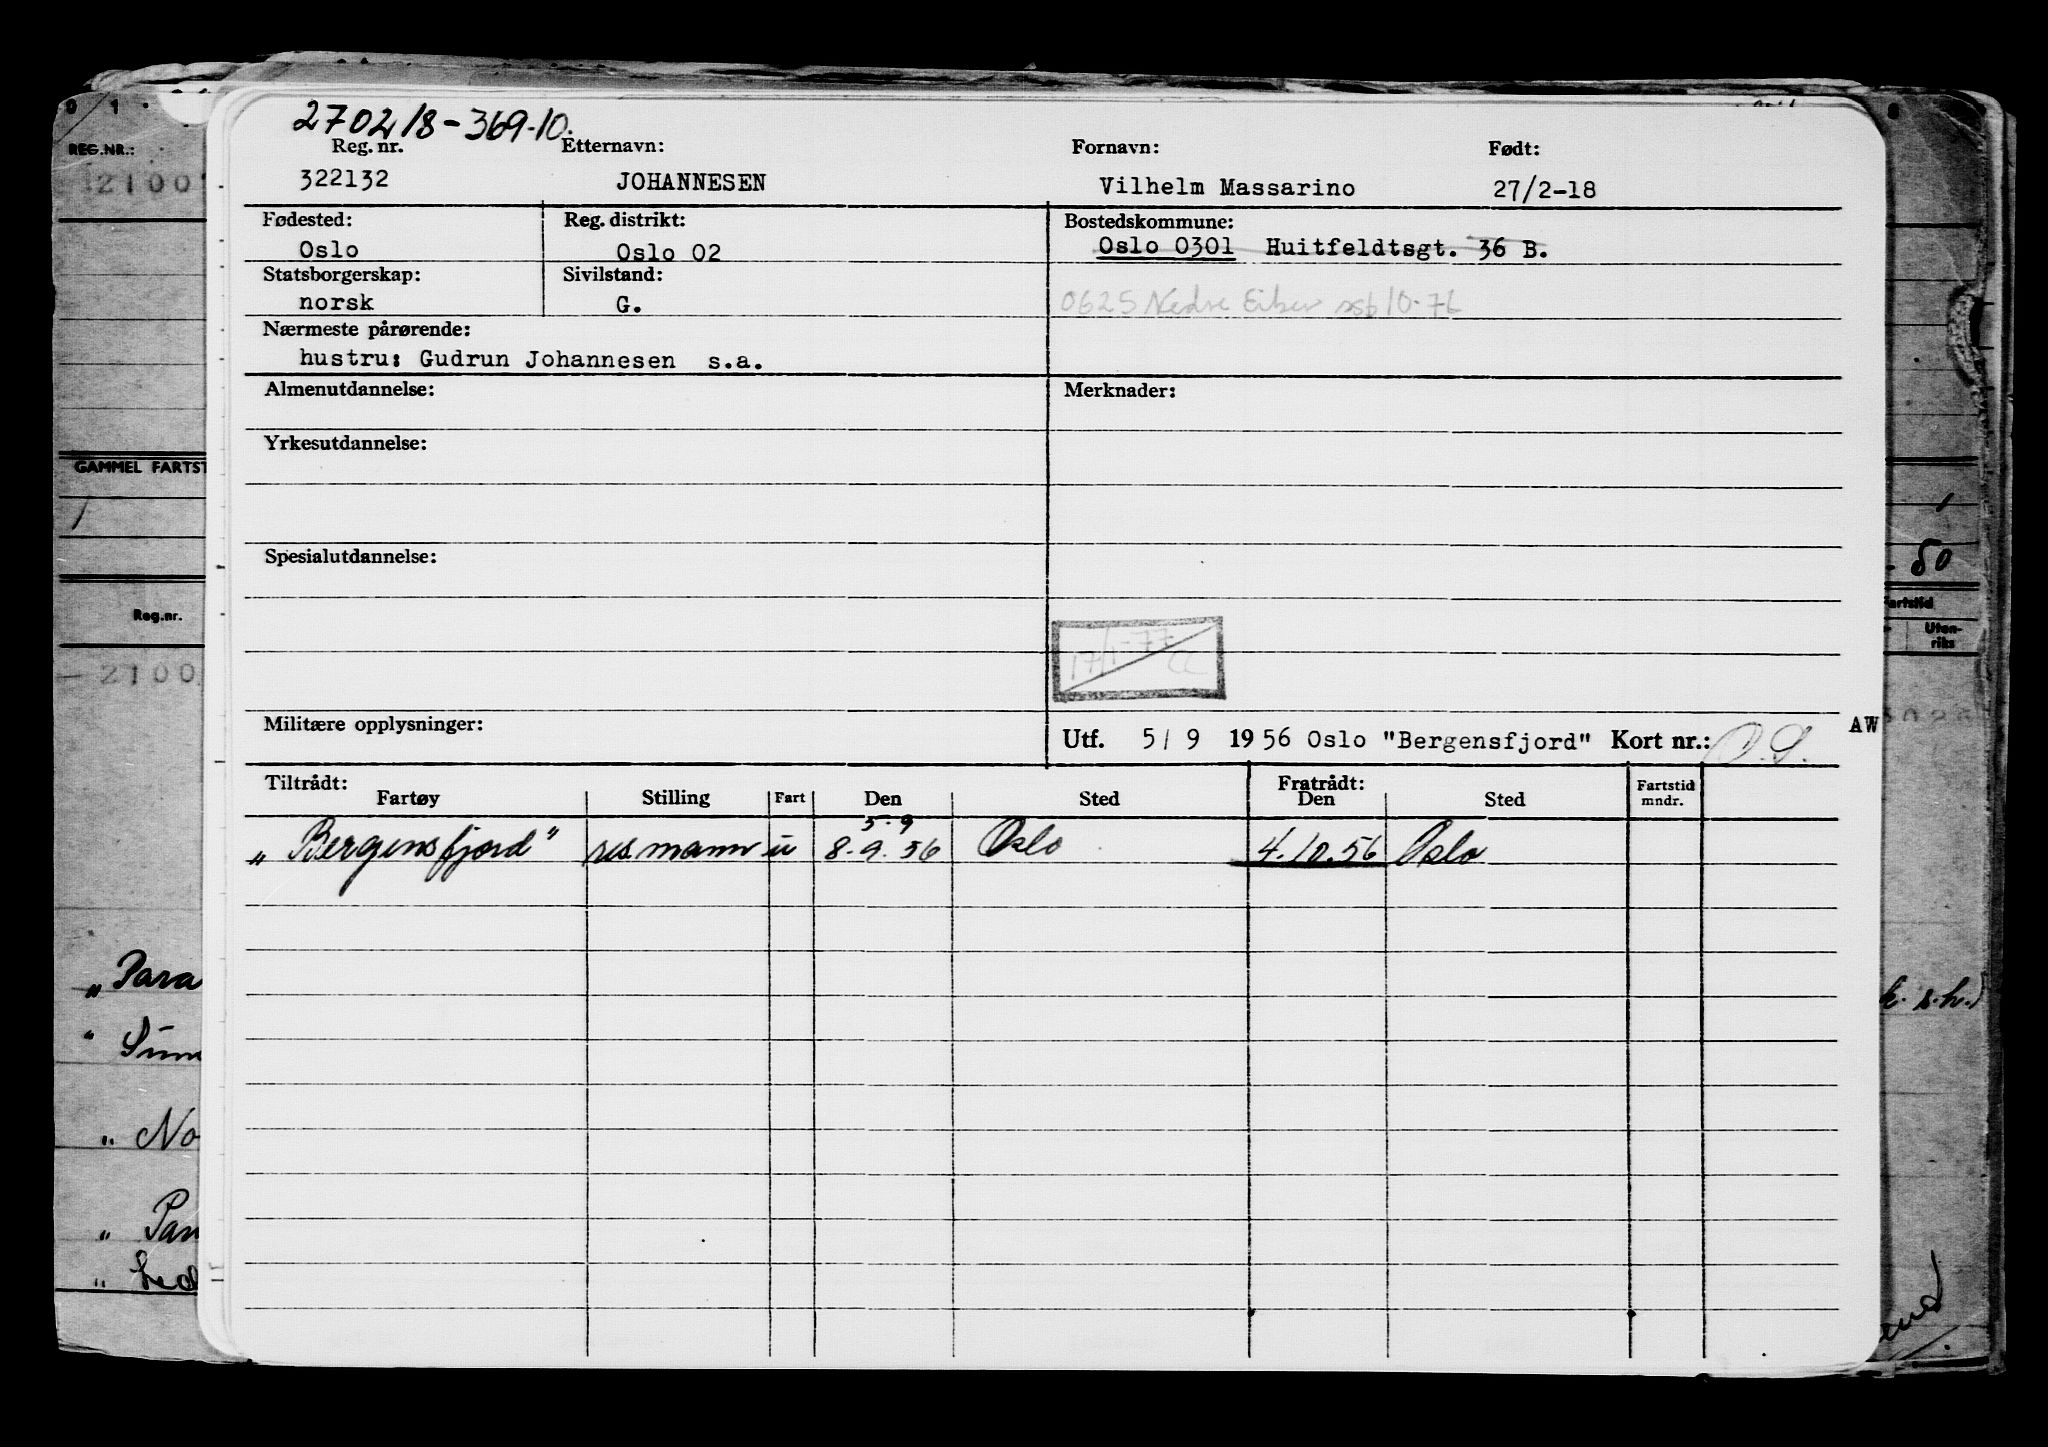 270218-369.10.
Reg. nr. Etternavn: Fornavn: Født:
322132 JOHANNESEN Vilhelm Massarino 27/2-18
Fødested: Reg. distrikt: Bostedskommune:
Oslo Oslo 02 Oslo 0301 Huitfeldtsgt. 36 B.
Statsborgerskap: Sivilstand:
norsk G. 0625 Nedre Eiker 10-76
Nærmeste pårørende:
hustru: Gudrun Johannesen s.a.
Almenutdannelse: Merknader:
Yrkesutdannelse:
Spesialutdannelse:
17/1-77 CC
Militære opplysninger:
Utf. 5/ 9 1956 Oslo "Bergensfjord" Kort nr.: AW
Tiltrådt: Fratrådt:
Fartøy Stilling Fart Den Sted Den Sted Fartstid mndr.
5-9
„Bergensfjord" res.mann u 8.9.56 Oslo 4.10.56 Oslo
0 1
REG.NR.:
2100
GAMMEL FARTST
1
80
Reg.nr.
artstid
Uten-
riks
2100
„Para
k. s.h.)
" Sun
„ No
„ Pan
„